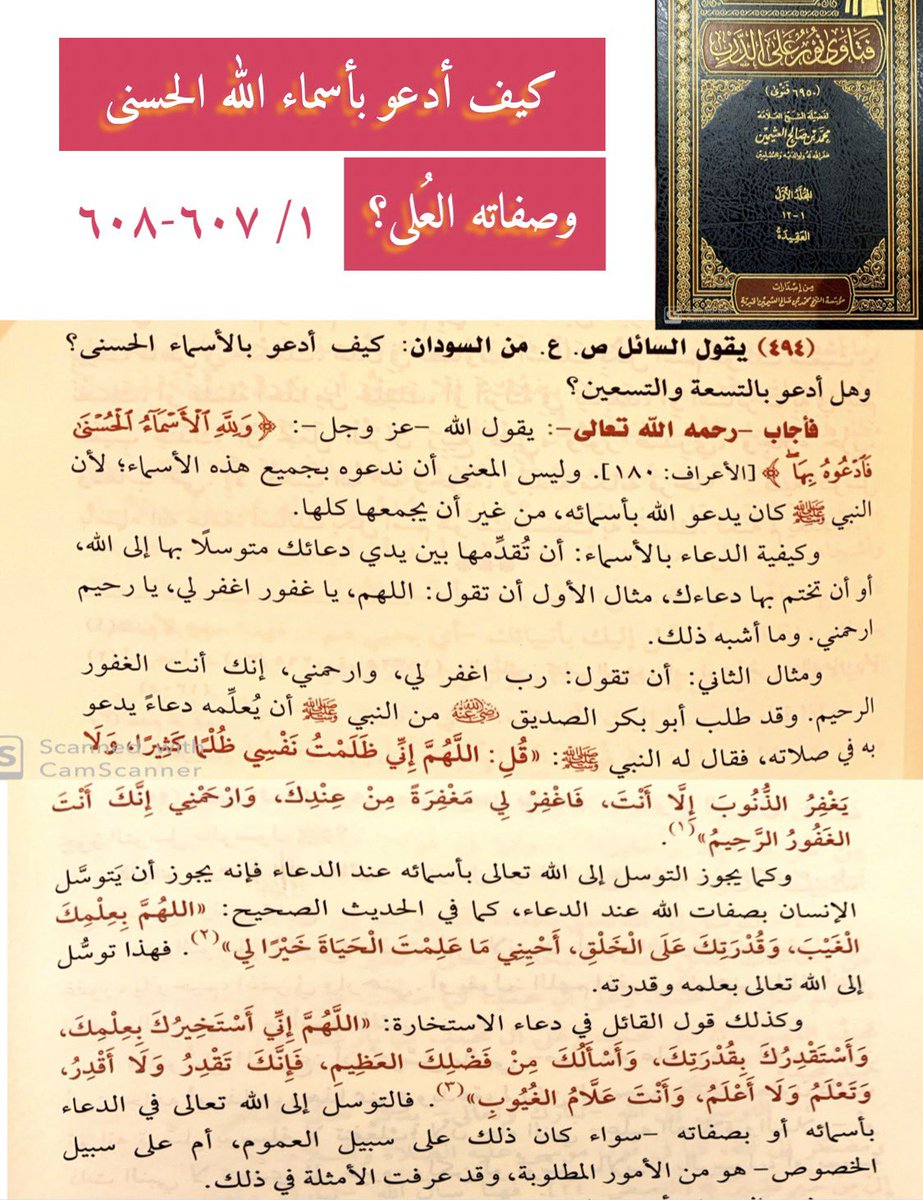 كيف أدعو بأسماء الله الحسنى
وصفاته العُلى؟
١/ ٦٠٧-٦٠٨
فتاوى نور على الدرب
(٦٩٥٠ فتوى)
لفضيلة الشيخ العلامة
محمد بن صالح العثيمين
غفر الله له ولوالديه وللمسلمين
المجلد الأول
١-١٢
العقيدة
من إصدارات
مؤسسة الشيخ محمد بن صالح العثيمين الخيرية
(٤٩٤) يقول السائل ص. ع. من السودان: كيف أدعو بالأسماء الحسنى؟
وهل أدعو بالتسعة والتسعين؟
فأجاب -رحمه الله تعالى-: يقول الله -عز وجل-: ﴿وَلِلَّهِ ٱلْأَسْمَآءُ ٱلْحُسْنَىٰ
فَٱدْعُوهُ بِهَا﴾ [الأعراف: ١٨٠]. وليس المعنى أن ندعوه بجميع هذه الأسماء؛ لأن
النبي ﷺ كان يدعو الله بأسمائه، من غير أن يجمعها كلها.
وكيفية الدعاء بالأسماء: أن تُقدِّمها بين يدي دعائك متوسلًا بها إلى الله،
أو أن تختم بها دعاءك، مثال الأول أن تقول: اللهم، يا غفور اغفر لي، يا رحيم
ارحمني. وما أشبه ذلك.
ومثال الثاني: أن تقول: رب اغفر لي، وارحمني، إنك أنت الغفور
الرحيم. وقد طلب أبو بكر الصديق رضي الله عنه من النبي ﷺ أن يُعلِّمه دعاءً يدعو
به في صلاته، فقال له النبي ﷺ: «قُلِ: اللَّهُمَّ إِنِّي ظَلَمْتُ نَفْسِي ظُلْمًا كَثِيرًا، وَلَا
Scanned with
CamScanner
يَغْفِرُ الذُّنُوبَ إِلَّا أَنْتَ، فَاغْفِرْ لِي مَغْفِرَةً مِنْ عِنْدِكَ، وَارْحَمْنِي إِنَّكَ أَنْتَ
الغَفُورُ الرَّحِيمُ»(١).
وكما يجوز التوسل إلى الله تعالى بأسمائه عند الدعاء فإنه يجوز أن يَتوسَّل
الإنسان بصفات الله عند الدعاء، كما في الحديث الصحيح: «اللهُمَّ بِعِلْمِكَ
الْغَيْبَ، وَقُدْرَتِكَ عَلَى الْخَلْقِ، أَحْيِنِي مَا عَلِمْتَ الْحَيَاةَ خَيْرًا لِي»(٢). فهذا توسُّل
إلى الله تعالى بعلمه وقدرته.
وكذلك قول القائل في دعاء الاستخارة: «اللَّهُمَّ إِنِّي أَسْتَخِيرُكَ بِعِلْمِكَ،
وَأَسْتَقْدِرُكَ بِقُدْرَتِكَ، وَأَسْأَلُكَ مِنْ فَضْلِكَ العَظِيمِ، فَإِنَّكَ تَقْدِرُ وَلَا أَقْدِرُ،
وَتَعْلَمُ وَلَا أَعْلَمُ، وَأَنْتَ عَلَّامُ الغُيُوبِ»(٣). فالتوسل إلى الله تعالى في الدعاء
بأسمائه أو بصفاته -سواء كان ذلك على سبيل العموم، أم على سبيل
الخصوص- هو من الأمور المطلوبة، وقد عرفت الأمثلة في ذلك.